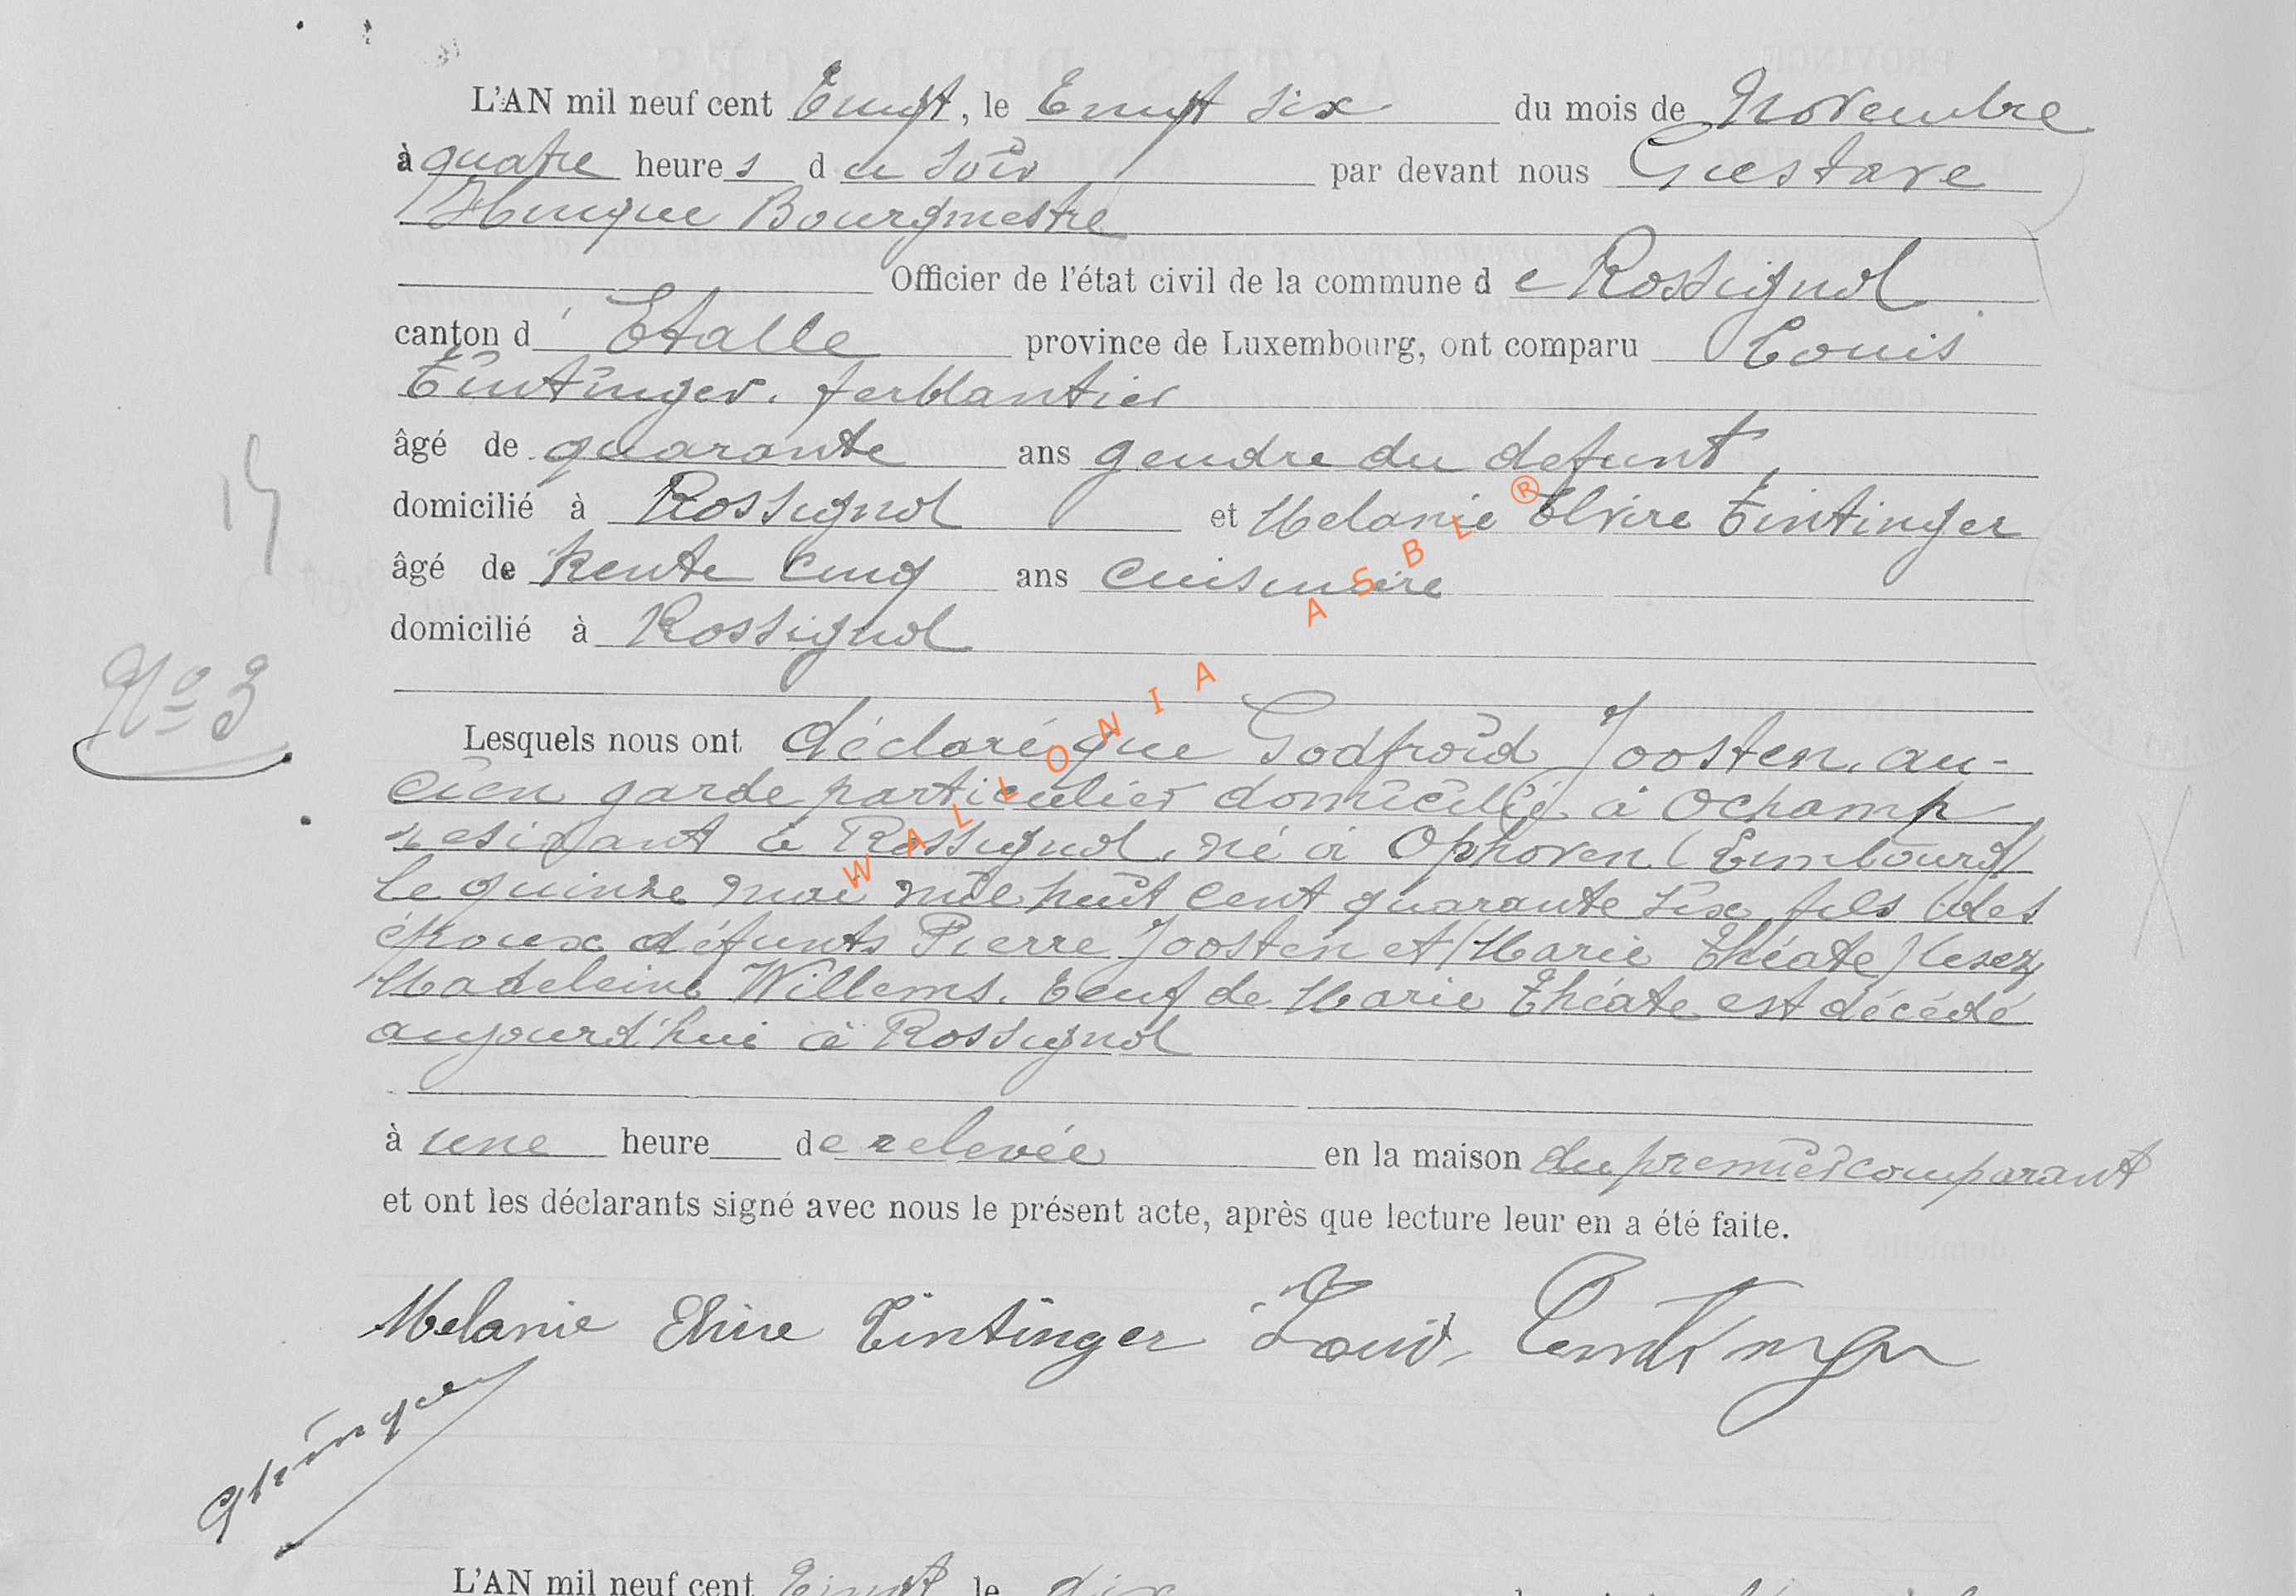 L'AN mil neuf cent Vingt, le Vingt six du mois de Novembre
à quatre heures du soir par devant nous Gustave
Hinque Bourgmestre
Officier de l'état civil de la commune de Rossignol
canton d'Etalle province de Luxembourg, ont comparu Louis
Tintinger. ferblantier
âgé de quarante ans gendre du defunt,
domicilié à Rossignol et Melanie Elvire Tintinger
âgé de trente cinq ans cuisinière
domicilié à Rossignol
N° 3
Lesquels nous ont déclaré que Godfroid Joosten, an-
cien garde particulier domicilié à Ochamp
residant à Rossignol, né à Ophoven (Limbourg)
le quinze mai mil huit cent quarante six, fils des
époux défunts Pierre Joosten et (Marie Théate) lisez
Madeleine Willems. Veuf de Marie Théate est décédé
aujourd'hui à Rossignol
à une heure de relevée en la maison du premier comparant
et ont les déclarants signé avec nous le présent acte, après que lecture leur en a été faite.
Melanie Elvire Tintinger Louis Tintinger
GHinque
L'AN mil neuf cent Vingt le dix
WALLONIA ASBL ®